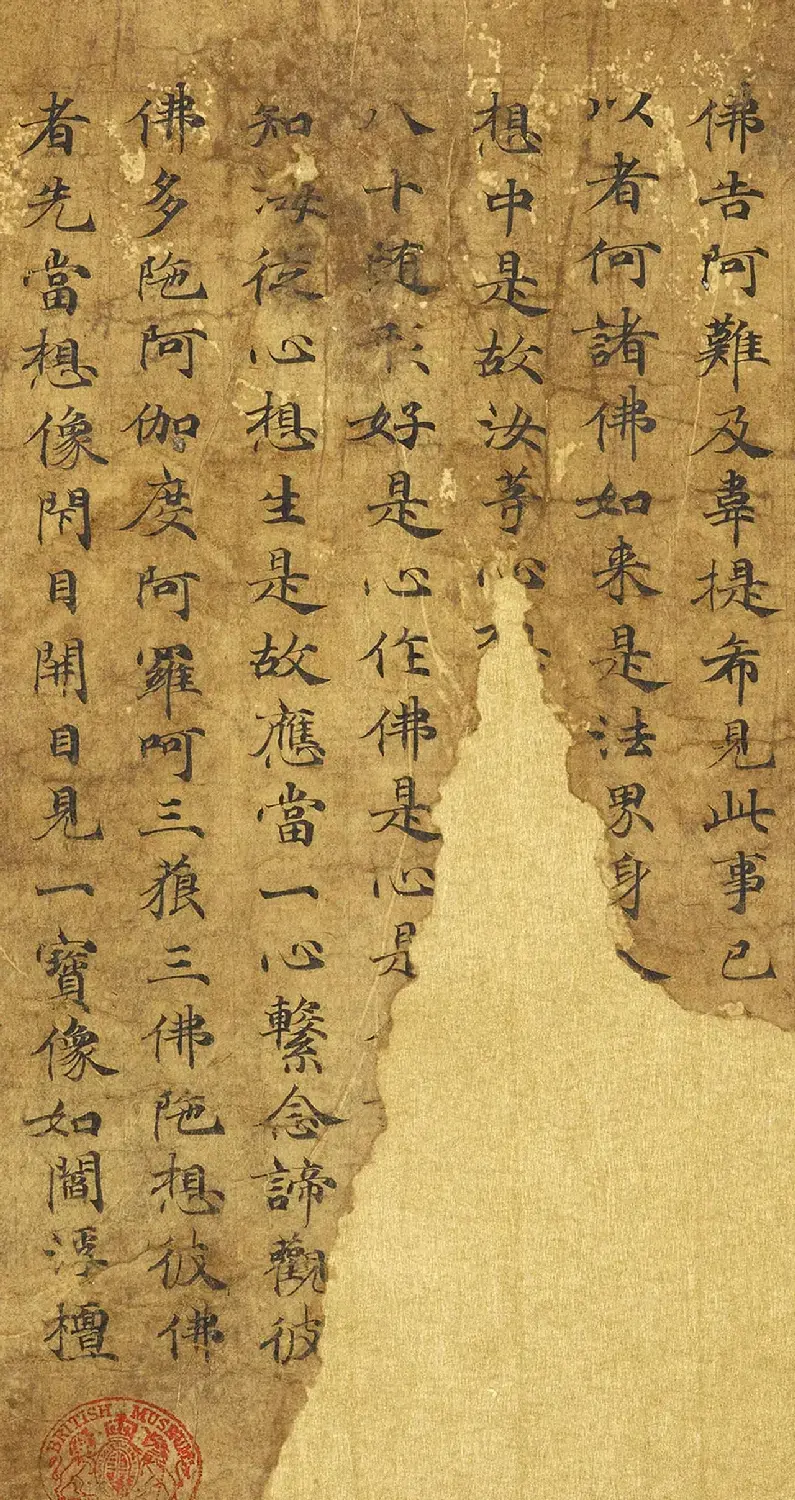 佛告阿難及韋提希見此事已
以者何諸佛如来是法界身
想中是故汝䓁心
八十随形好是心作佛是心是
知海従心想生是故應當一心繫念諦觀彼
佛多陁阿伽度阿羅呵三藐三佛陁想彼佛
者先當想像閇目開目見一寶像如閻浮檀
BRITISH MUSEUM